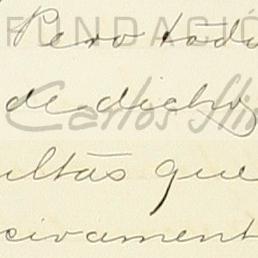 FUNDACIÓ
Pero todo
de dicho
Carlos Sli
ultas que
sivament